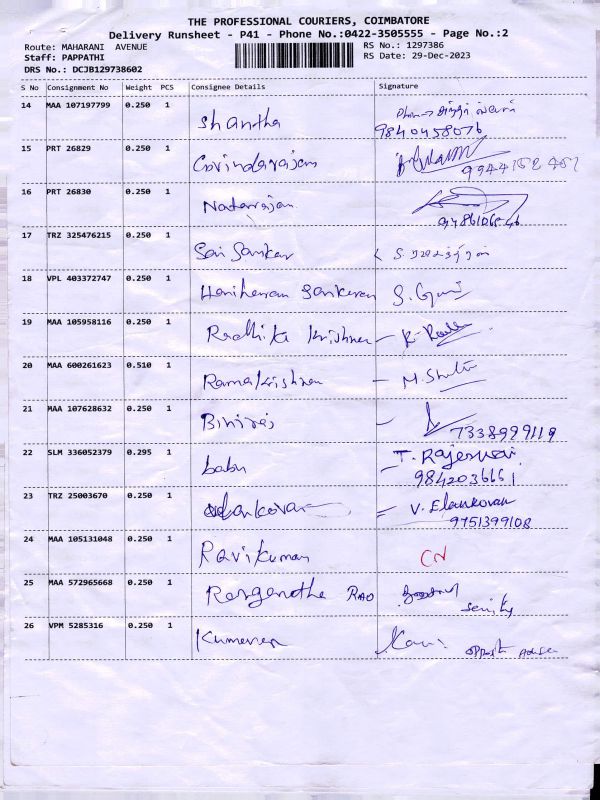 THE PROFESSIONAL COURIERS, COIMBATORE
Delivery Runsheet - P41 - Phone No.:0422-3505555 - Page No.:2
Route: MAHARANI AVENUE
RS No.: 1297386
Staff: PAPPATHI
RS Date: 29-Dec-2023
DRS No.: DCJB129738602
S No Consignment No Weight PCS Consignee Details Signature
14 MAA 107197799 0.250 1 Shantha
9840458076
15 PRT 26829 0.250 1 Govindarajan
16 PRT 26830 0.250 1 Natarajan
17 TRZ 325476215 0.250 1 Sai Sankar
18 VPL 403372747 0.250 1 Hariharan Sankaran
19 MAA 105958116 0.250 1 Radhika Krishnan
20 MAA 600261623 0.510 1 Rama Krishnan
21 MAA 107628632 0.250 1 Biniraj
7338999119
22 SLM 336052379 0.295 1 babu T. Rajeswari
9842036661
23 TRZ 25003670 0.250 1 V. Elankovan
9751399108
24 MAA 105131048 0.250 1 Ravikumar CN
25 MAA 572965668 0.250 1 Ranganatha RAO
26 VPM 5285316 0.250 1 Kumaran